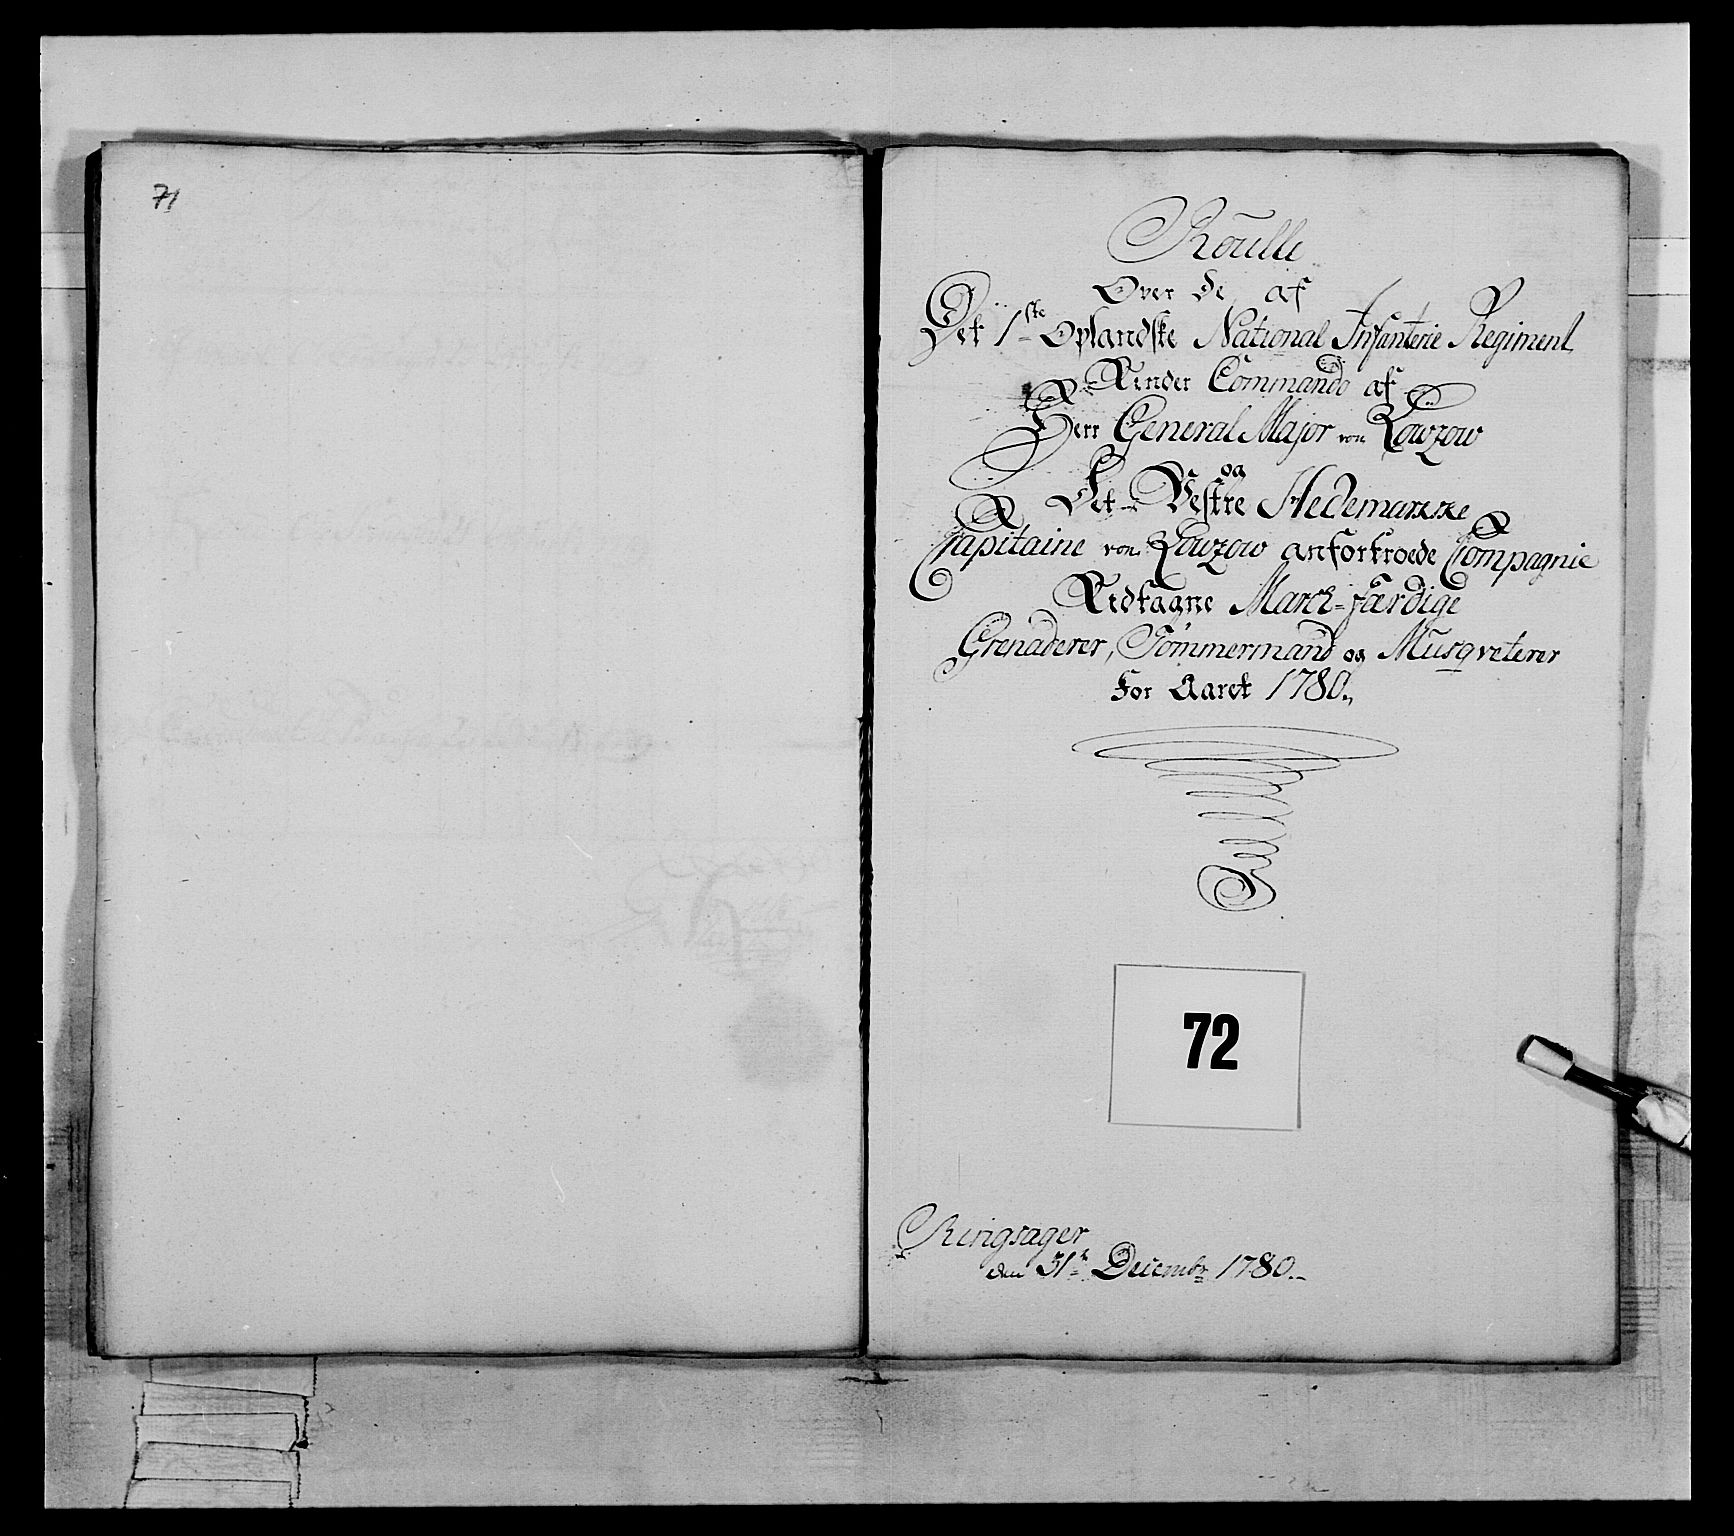 71
Roulle
Over de af
Det 1ste Oplandske National Infanterie Regiment
Under Commando af
Herr General Major von Lowzow
og
Det Vestre Hedemarkske
Capitaine von Lowzow anfortroede Compagnie
Udtagne March-færdige
Grenaderer, Tømmermænd og Musqveterer
For Aaret 1780.
72
Ringsager
den 31te Decembr 1780.